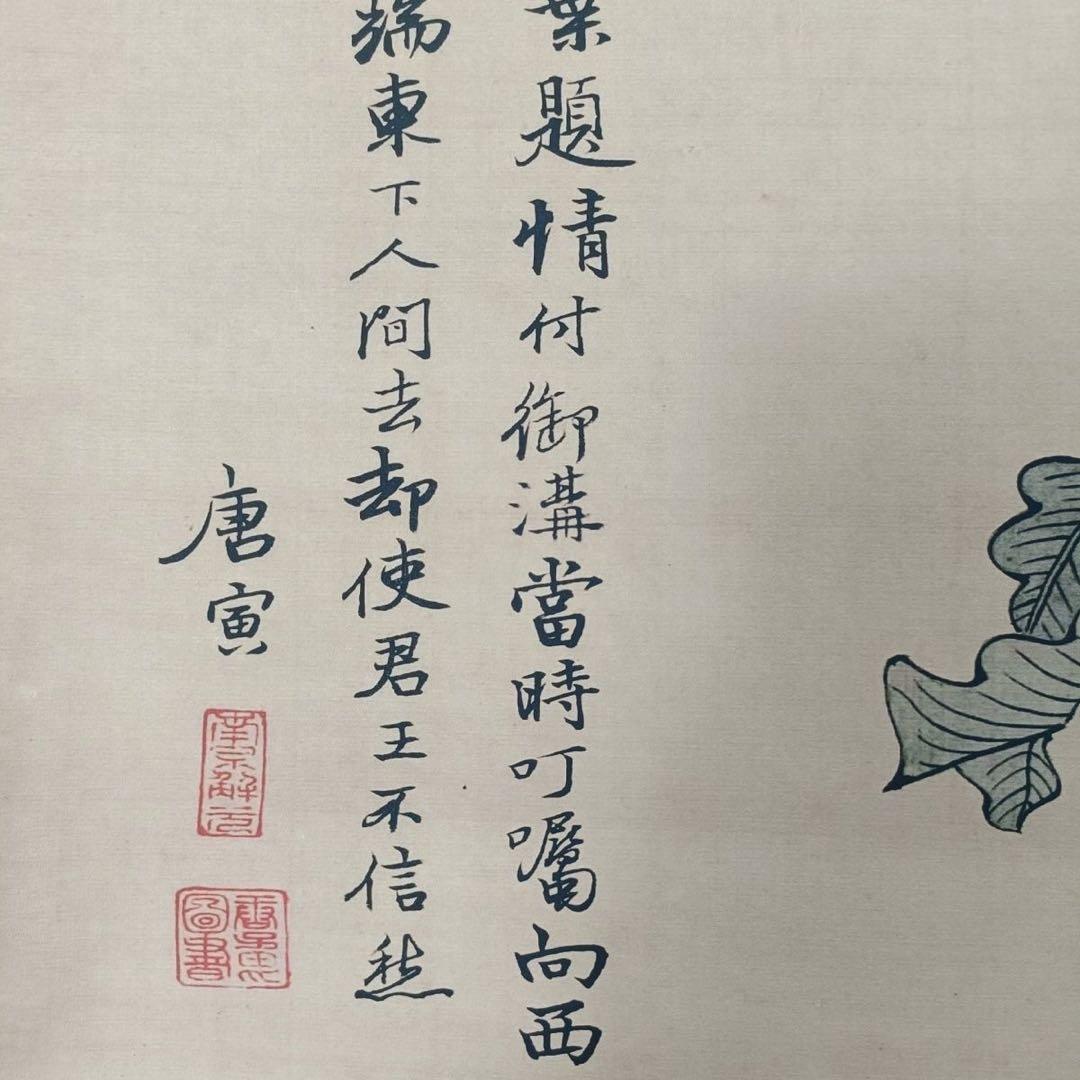 葉題情付御溝當時叮囑向西
端東下人間去却使君王不信愁
唐寅
南京解元
唐子畏圖書